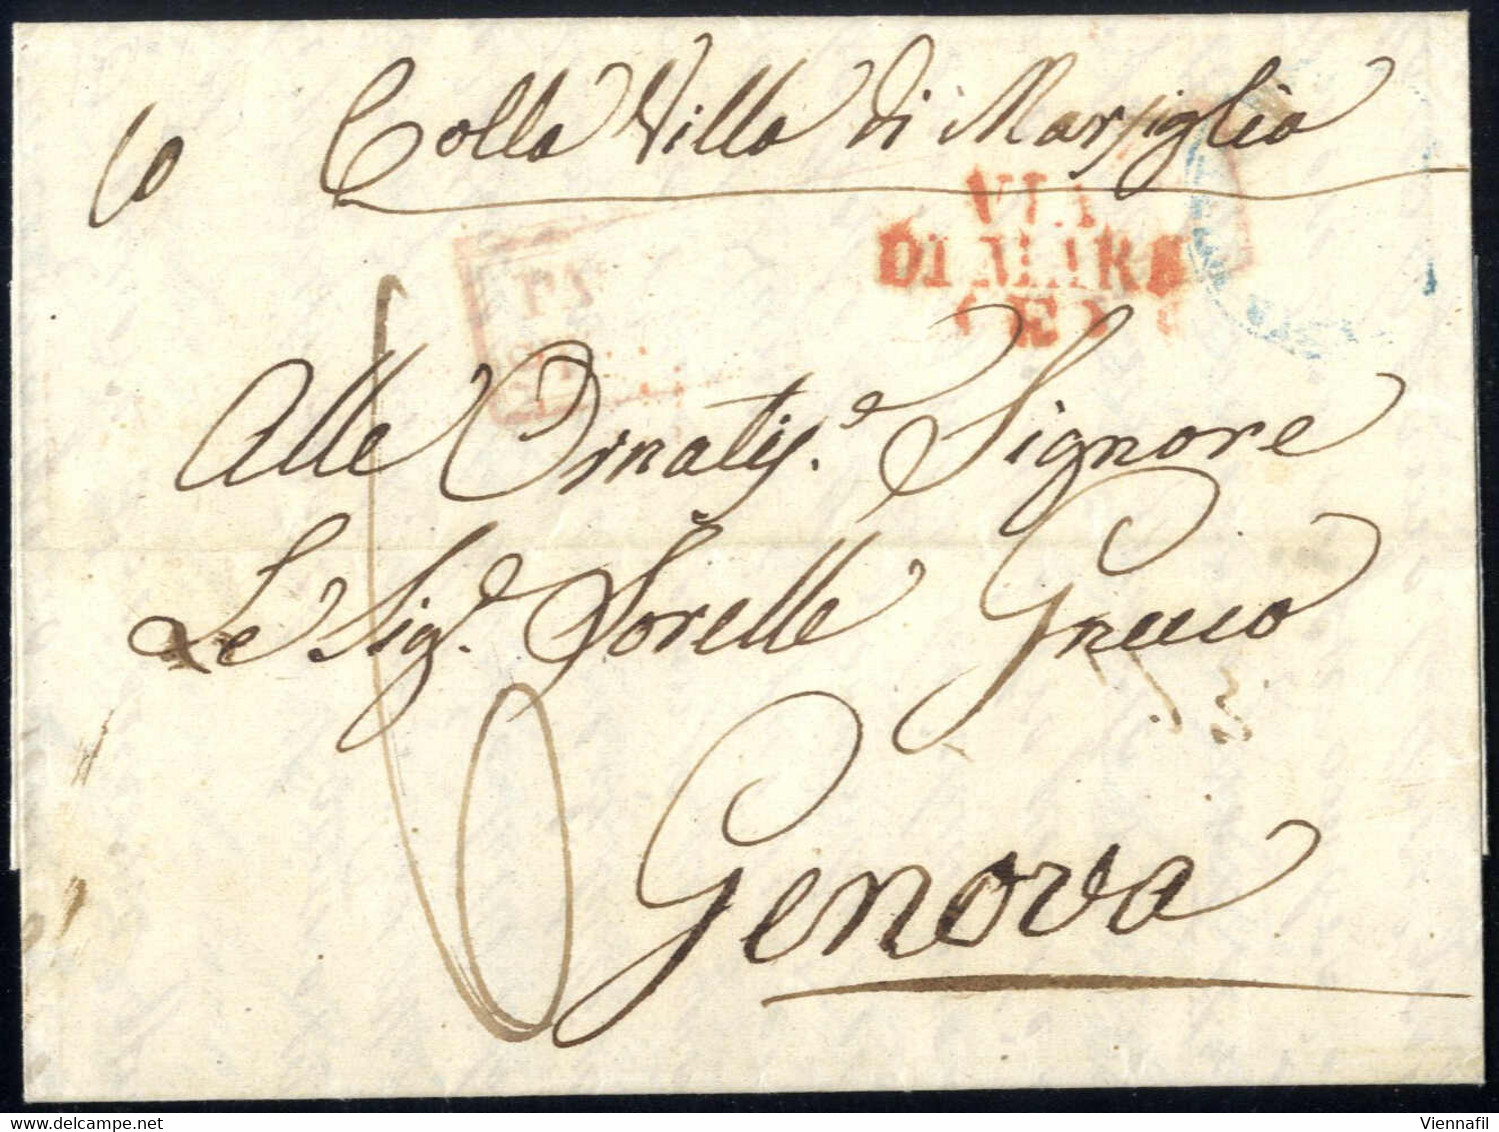 Colla Villa di Marsiglia
VIA
DI MARE
Alle Ornatis.e Signore
Le Sig.e Sorelle Grecco
Genova
Viennafil